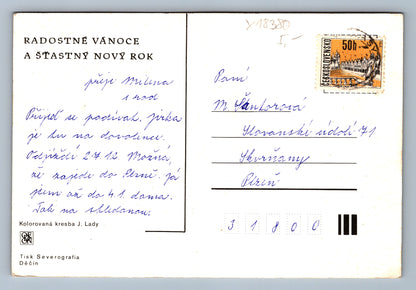 RADOSTNÉ VÁNOCE
A ŠŤASTNÝ NOVÝ ROK
přeje Milena
s rod
Přijeď se podívat, jirka
je tu na dovolence.
Odjíždí 27 12 Možná,
že zajede do Plzně. Já
jsem až do 4.1. doma.
Tak na shledanou.
Kolorovaná kresba J. Lady
Tisk Severografia
Děčín
Y 1838D
1,-
ČESKOSLOVENSKO
50h
Paní
M. Šantorová
Slovanské údolí 71
Skvrňany
Plzeň
31800